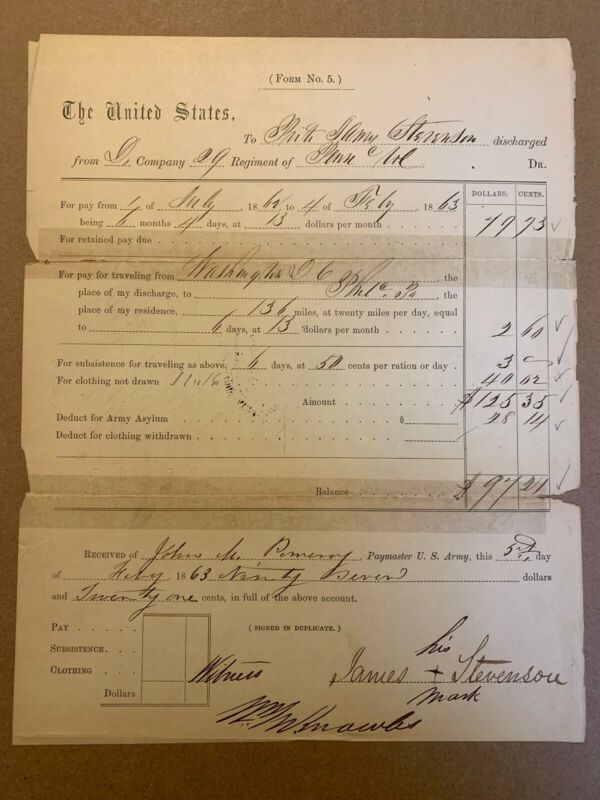 (FORM NO. 5.)
The United States,
To Priv. James Stevenson discharged
from D, Company 29 Regiment of Penn Vol. DR.
DOLLARS. CENTS.
For pay from 1 of July 1862 to 4 of Feby 1863
being months 4 days, at 13 dollars per month 79 73
For retained pay due
For pay for traveling from Washington D C the
place of my discharge, to Phila. Pa the
place of my residence, 136 miles, at twenty miles per day, equal
to 6 days, at 13 dollars per month 2 60
For subsistence for traveling as above, 6 days, at 50 cents per ration or day 3
For clothing not drawn 11.16 40 02
Amount $125 35
Deduct for Army Asylum $ 28 14
Deduct for clothing withdrawn
Balance $97 21
RECEIVED of John M. Pomeroy, Paymaster U. S. Army, this 5th day
of Feby 1863 Ninty Seven dollars
and Twenty one cents, in full of the above account.
PAY
(SIGNED IN DUPLICATE.)
SUBSISTENCE.
CLOTHING
Dollars
Witness
his
James + Stevenson
mark
Wm Knowles